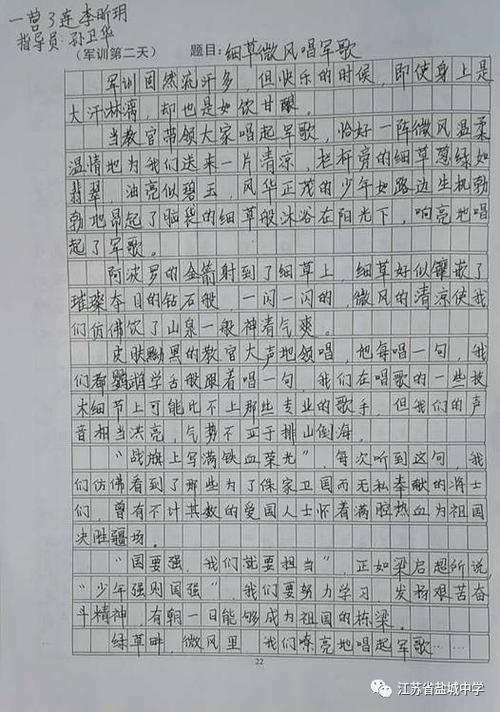 一营3连 李昕玥
指导员：孙卫华
（军训第二天） 题目：细草微风唱军歌
军训固然流汗多，但快乐的时候，即使身上是
大汗淋漓，却也是如饮甘醇。
当教官带领大家唱起军歌，恰好一阵微风温柔
温情地为我们送来一片清凉，栏杆旁的细草葱绿如
翡翠，油亮似碧玉，风华正茂的少年如路边生机勃
勃地昂起了脑袋的细草般沐浴在阳光下，响亮地唱
起了军歌。
阿波罗的金箭射到了细草上，细草好似镶嵌了
璀璨夺目的钻石般一闪一闪的，微风的清凉使我
们仿佛饮了山泉一般神清气爽。
皮肤黝黑的教官大声地领唱，他每唱一句，我
们都鹦鹉学舌般跟着唱一句，我们在唱歌的一些技
术细节上可能比不上那些专业的歌手，但我们的声
音相当洪亮，气势不亚于排山倒海。
“战旗上写满铁血荣光”，每次听到这句，我
们仿佛看到了那些为了保家卫国而无私奉献的将士
们，曾有不计其数的爱国人士怀着满腔热血为祖国
决胜疆场。
“国要强，我们就要担当”，正如梁启超所说
“少年强则国强”，我们要努力学习，发扬艰苦奋
斗精神，有朝一日能够成为祖国的栋梁。
绿草畔，微风里，我们嘹亮地唱起军歌……
22
江苏省盐城中学